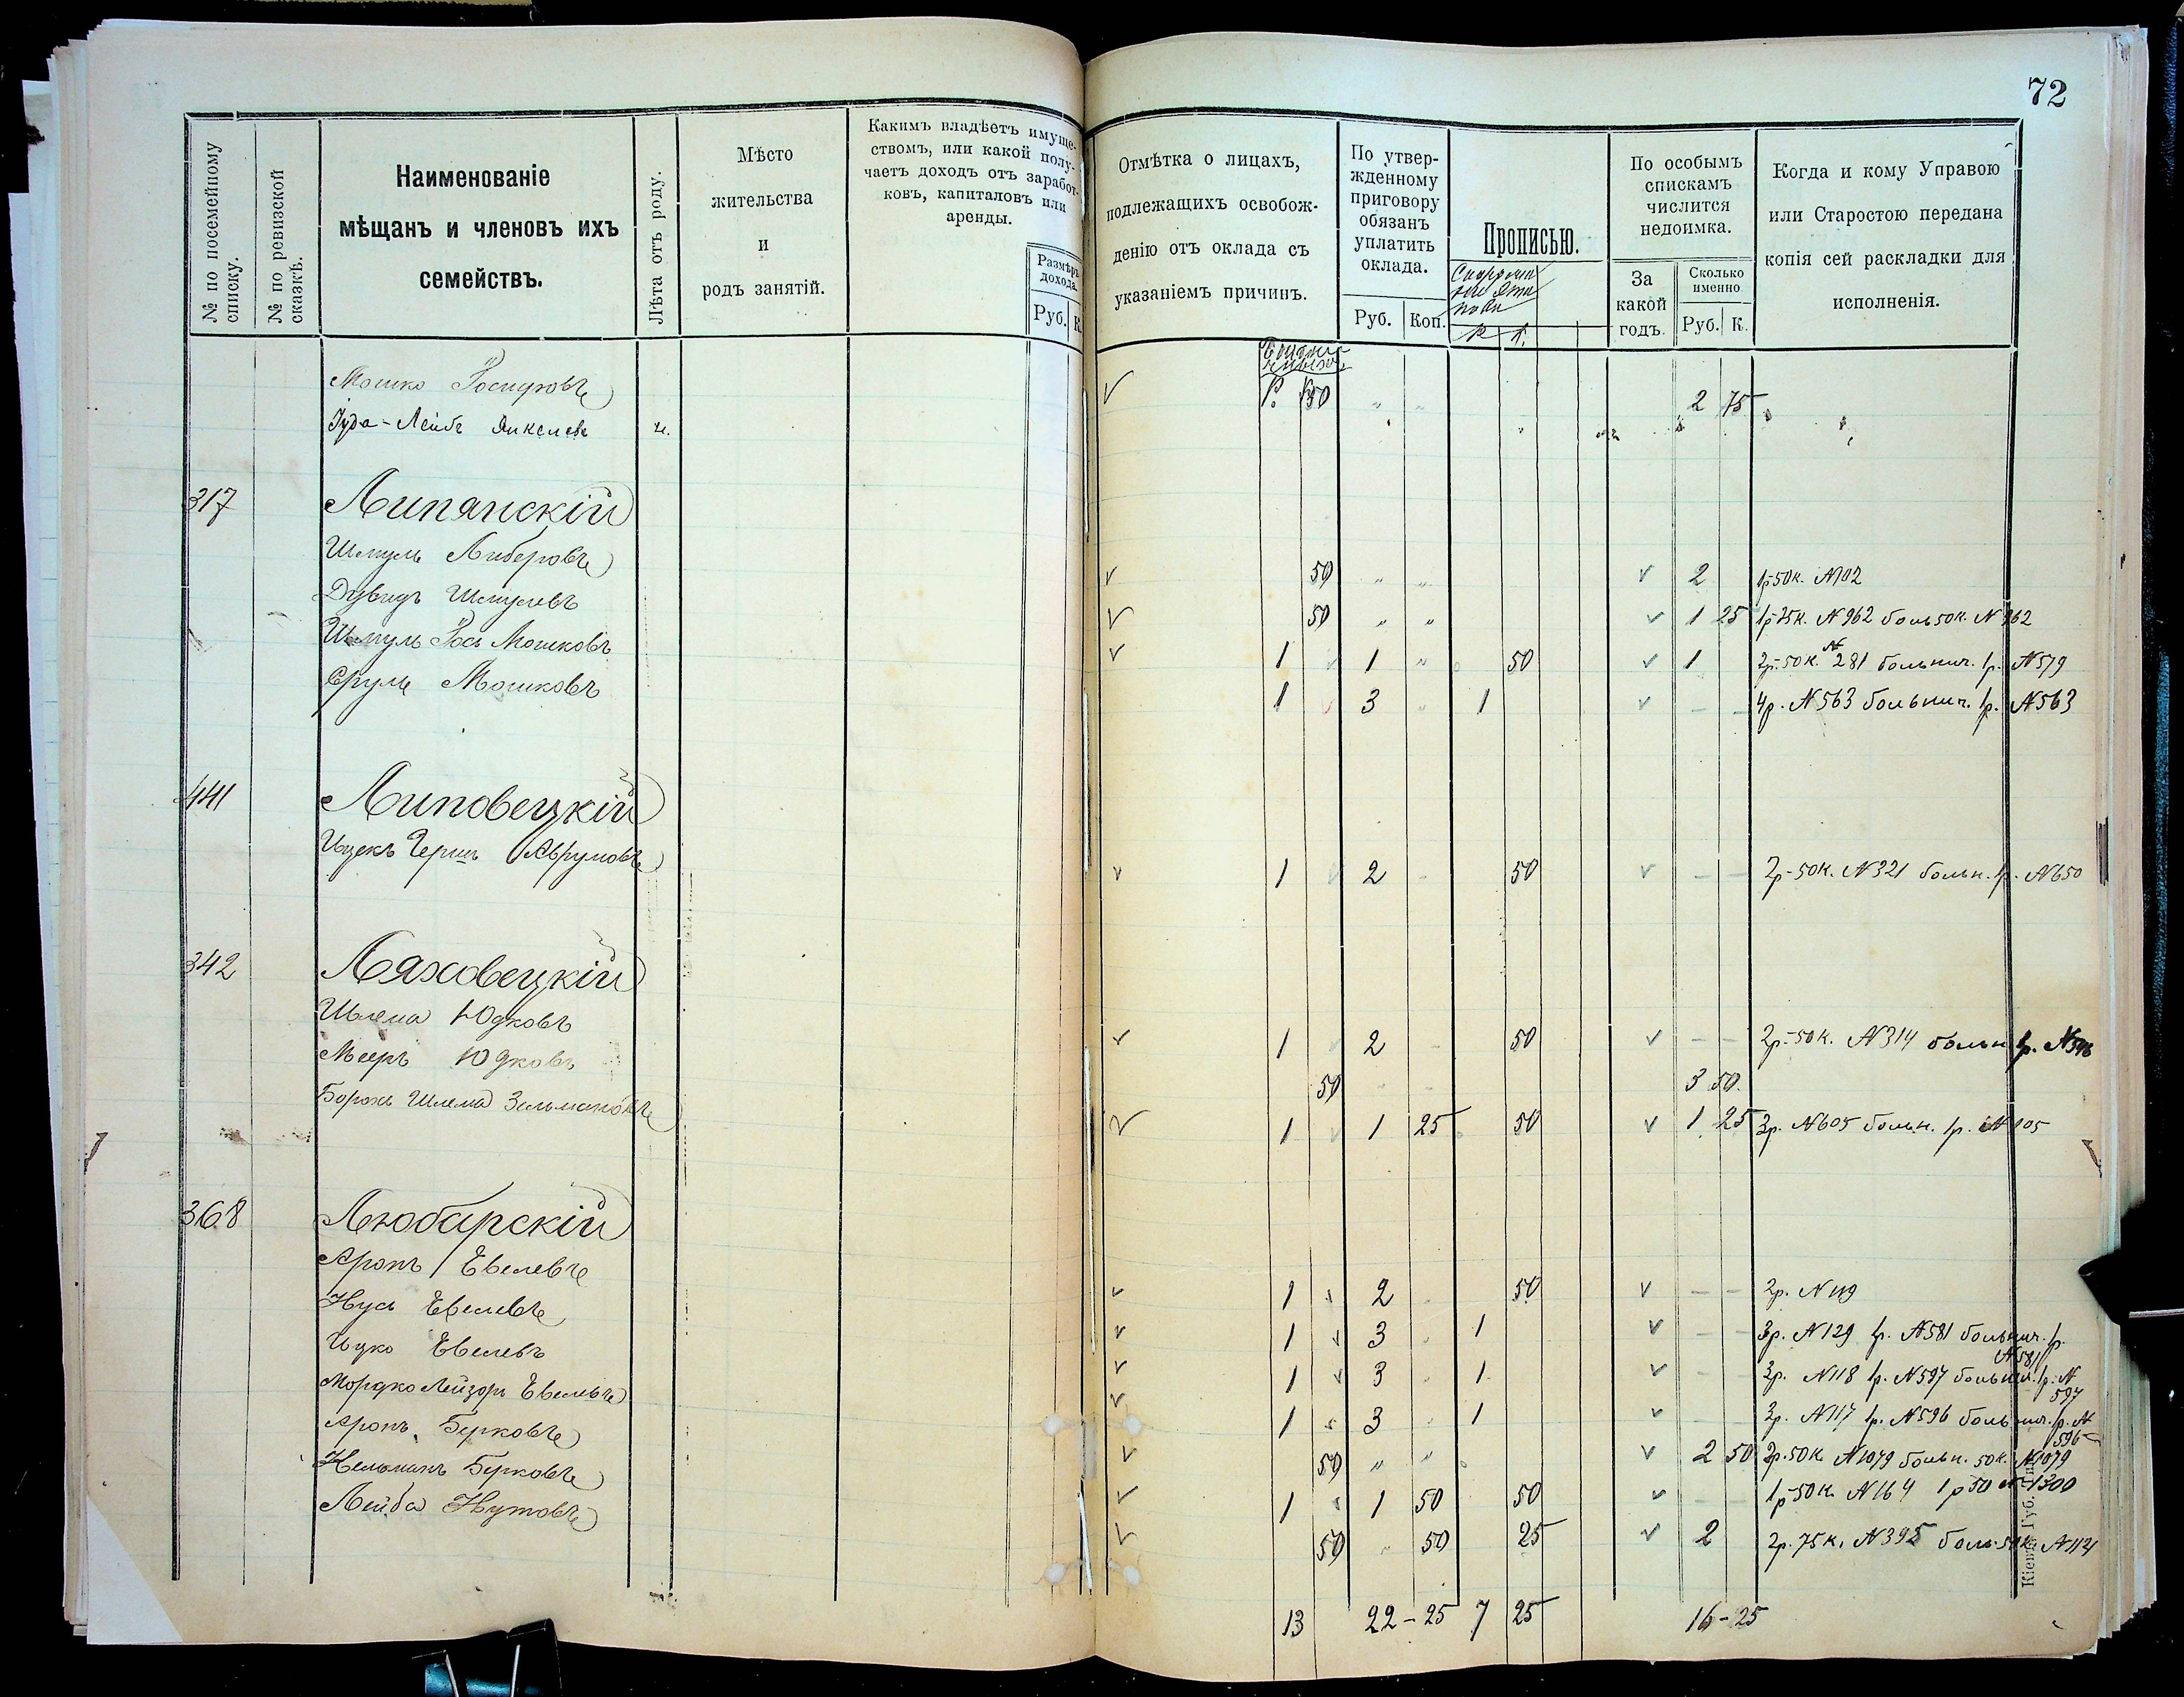 72
№ по посемейному списку.
№ по ревизской сказкѣ.
Наименованіе
мѣщанъ и членовъ ихъ
семействъ.
Лѣта отъ роду.
Мѣсто
жительства
и
родъ занятій.
Какимъ владѣетъ имуще-
ствомъ, или какой полу-
чаетъ доходъ отъ заработ-
ковъ, капиталовъ или
аренды.
Размѣръ
дохода.
Руб. К.
Отмѣтка о лицахъ,
подлежащихъ освобож-
денію отъ оклада съ
указаніемъ причинъ.
По утвер-
жденному
приговору
обязанъ
уплатить
оклада.
Руб. Коп.
Прописью.
Р К.
По особымъ
спискамъ
числится
недоимка.
За
какой
годъ.
Сколько
именно
Руб. К.
Когда и кому Управою
или Старостою передана
копія сей раскладки для
исполненія.
Р. К
Мошко 50 " " 2 75
Іуда-Лейбъ Янкелевъ
317 Липянскій
Шмуль Либеровъ 50 " " 2 1р-50к. №102
Дувидъ Шмулевъ 50 " " 1 25 1р-25к. №962 боль50к. №962
Шмуль Іось Мошковъ 1 1 " 50 1 2р-50к. № 281 больнич. 1р. №579
Сруль Мошковъ 1 3 " 1 — — 4р. №563 больнич. 1р. №563
441 Липовецкій
Ицекъ Гершъ Аврумовъ 1 2 - 50 — — 2р-50к. №321 больн. 1р. №650
342 Ляховецкій
Шлема Юдковъ 1 2 - 50 — — 2р-50к. №314 больн 1р.
Мееръ Юдковъ 50 " " 3 50.
Борохъ Шлема Зельмановъ 1 1 25 50 1 25 3р. №605 больн. 1р. №
368 Любарскій
Аронъ Евелевъ 1 2 50 — — 2р. №119
Нусъ Евелевъ 1 3 1 — — 3р. №129 1р. №581 больнич. 1р. №581
Ицко Евелевъ 1 3 1 — 3р. №118 1р. №597 больнич. 1р. № 597
Мордко Лейзоръ Евелевъ 1 3 1 — 3р. №117 1р. №596 больнич. 1р. № 596
Аронъ Берковъ 50 " " 2 50 2р.50к. №1079 больн. 50к. №1079
Кельманъ Берковъ 1 1 50 50 — — 1р-50к. №164 1р50 №1300
Лейба Нутовъ 50 " 50 25 2 2р.75к. №395 боль.50к.
13 22-25 7 25 16-25